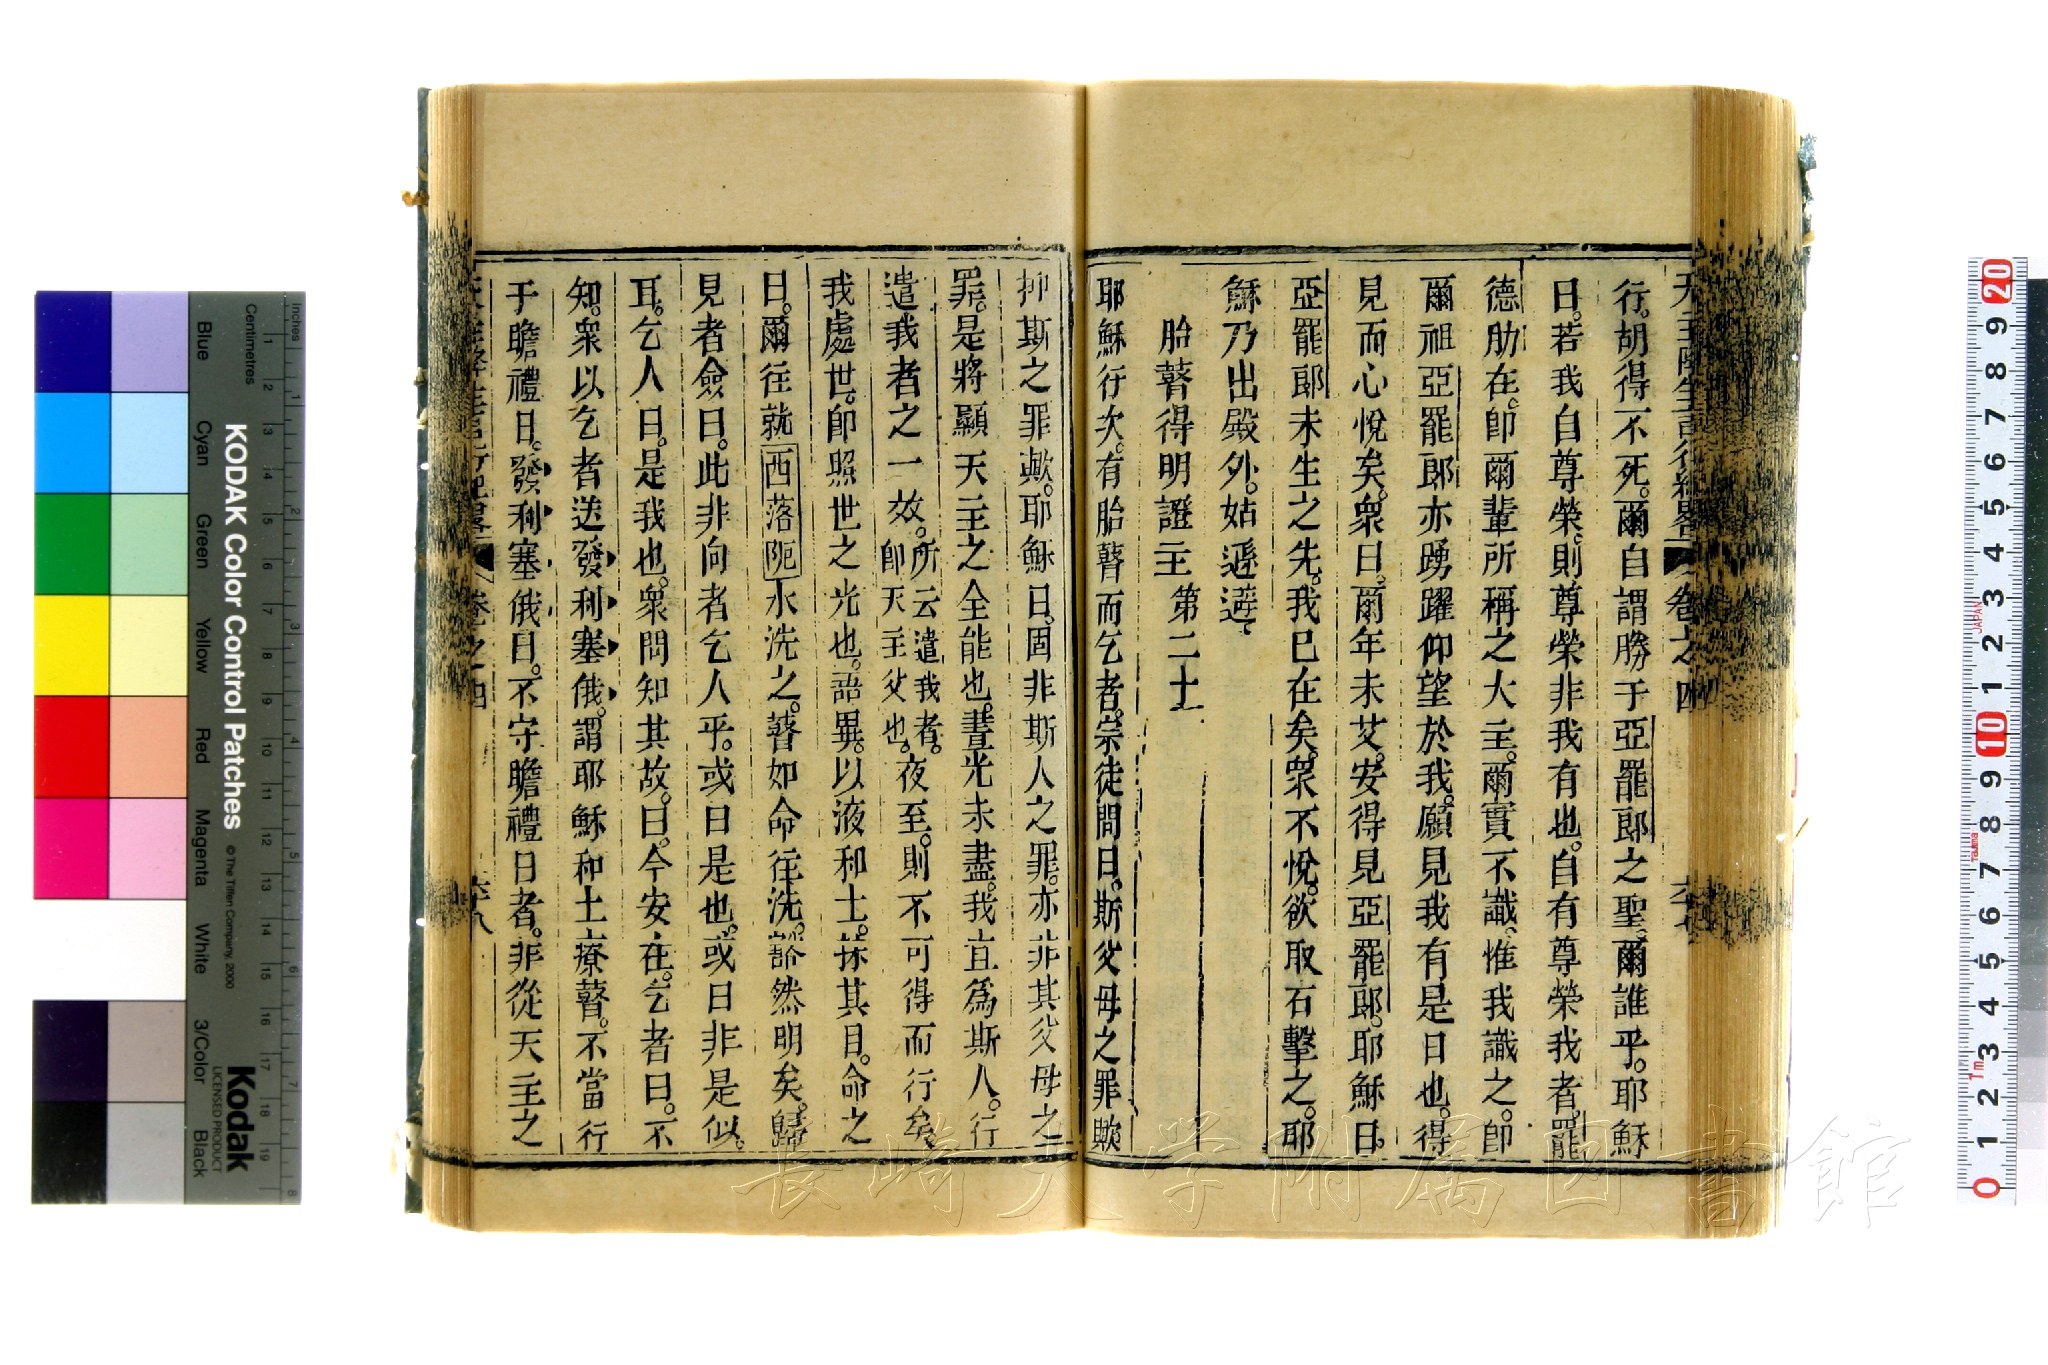 天主降生言行紀畧 卷之四 六十七
行。胡得不死。爾自謂勝于亞罷郎之聖。爾誰乎。耶穌
曰。若我自尊榮。則尊榮非我有也。自有尊榮我者。罷
德肋在。卽爾輩所稱之大主。爾實不識。惟我識之。卽
爾祖亞罷郎亦踴躍仰望於我。願見我有是日也。得
見而心悅矣。衆曰。爾年未艾。安得見亞罷郎。耶穌曰。
亞罷郎未生之先。我已在矣。衆不悅。欲取石擊之。耶
穌乃出殿外。姑遜避。
胎瞽得明證主 第二十
耶穌行次。有胎瞽而乞者。宗徒問曰。斯父母之罪歟
抑斯之罪歟。耶穌曰。固非斯人之罪。亦非其父母之
罪。是將顯天主之全能也。晝光未盡。我宜爲斯人。行
遣我者之一效。所云遣我者。卽天主父也。夜至。則不可得而行矣。
我處世。卽照世之光也。語畢。以液和土。抹其目。命之
曰。爾往就西落阨水洗之。瞽如命往洗。豁然明矣。歸
見者僉曰。此非向者乞人乎。或曰是也。或曰非是似
耳。乞人曰。是我也。衆問知其故。曰。今安在。乞者曰。不
知。衆以乞者送發利塞俄。謂耶穌和土療瞽。不當行
于瞻禮日。發利塞俄曰。不守瞻禮日者。非從天主之
天主降生言行紀畧 卷之四 六十八
長崎大学附属図書館
KODAK Color Control Patches
© The Tiffen Company, 2000
Kodak
LICENSED PRODUCT
Centimetres
Inches
Blue
Cyan
Green
Yellow
Red
Magenta
White
3/Color
Black